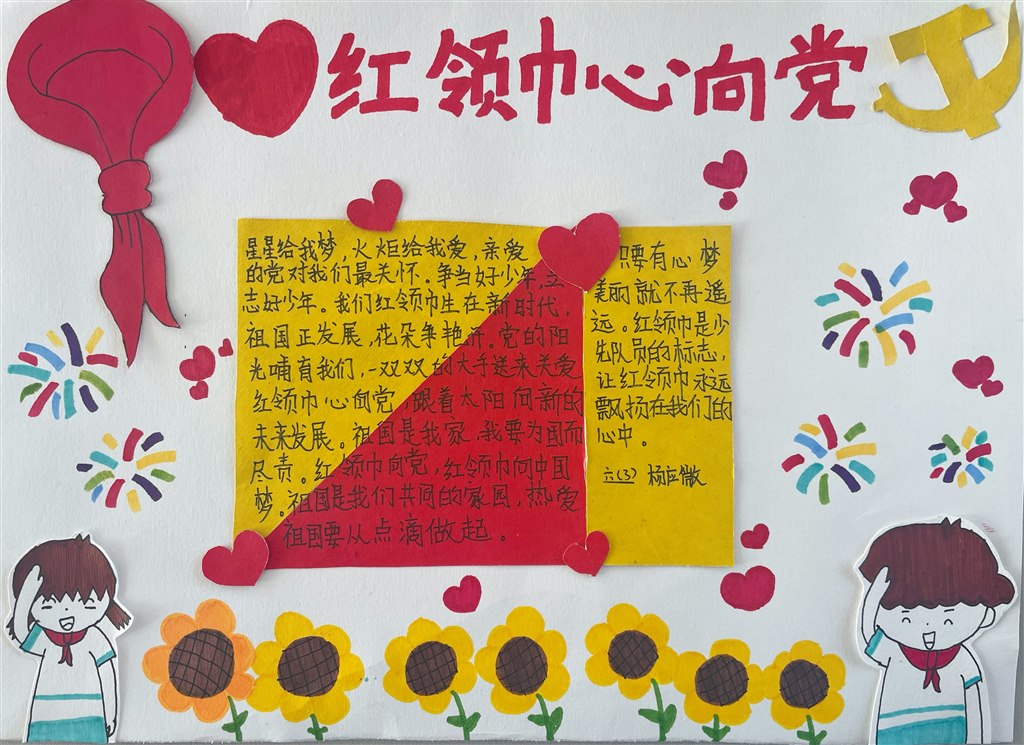 红领巾心向党
星星给我梦,火炬给我爱,亲爱
的党对我们最关怀。争当好少年,立
志好少年。我们红领巾生在新时代,
祖国正发展,花朵争艳开。党的阳
光哺育我们,一双双的大手送来关爱
红领巾心向党,跟着太阳向新的
未来发展。祖国是我家,我要为国而
尽责。红领巾向党,红领巾向中国
梦。祖国是我们共同的家园,热爱
祖国要从点滴做起。
只要有心梦
美丽就不再遥
远。红领巾是少
先队员的标志,
让红领巾永远
飘扬在我们的
心中。
六(3) 杨应